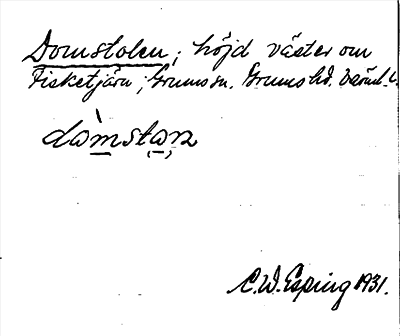 Domstolen; höjd väster om
Fisketjärn, Grums sn. Grums hd. Värml. l.
dòmstaɷn
C. W. Esping 1931.